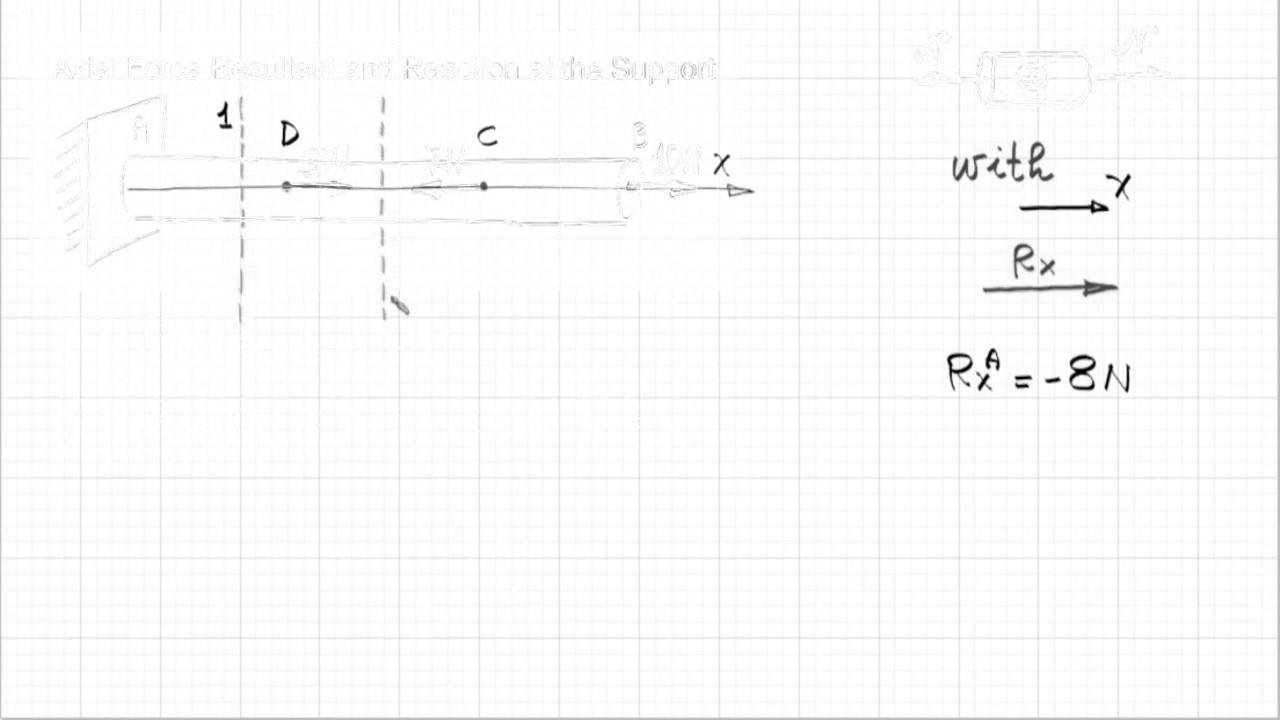 Axial Force Resultant and Reaction at the Support
N N
A 1 D C B
5N 7N 10N X
with
x
Rx
RxA = -8N